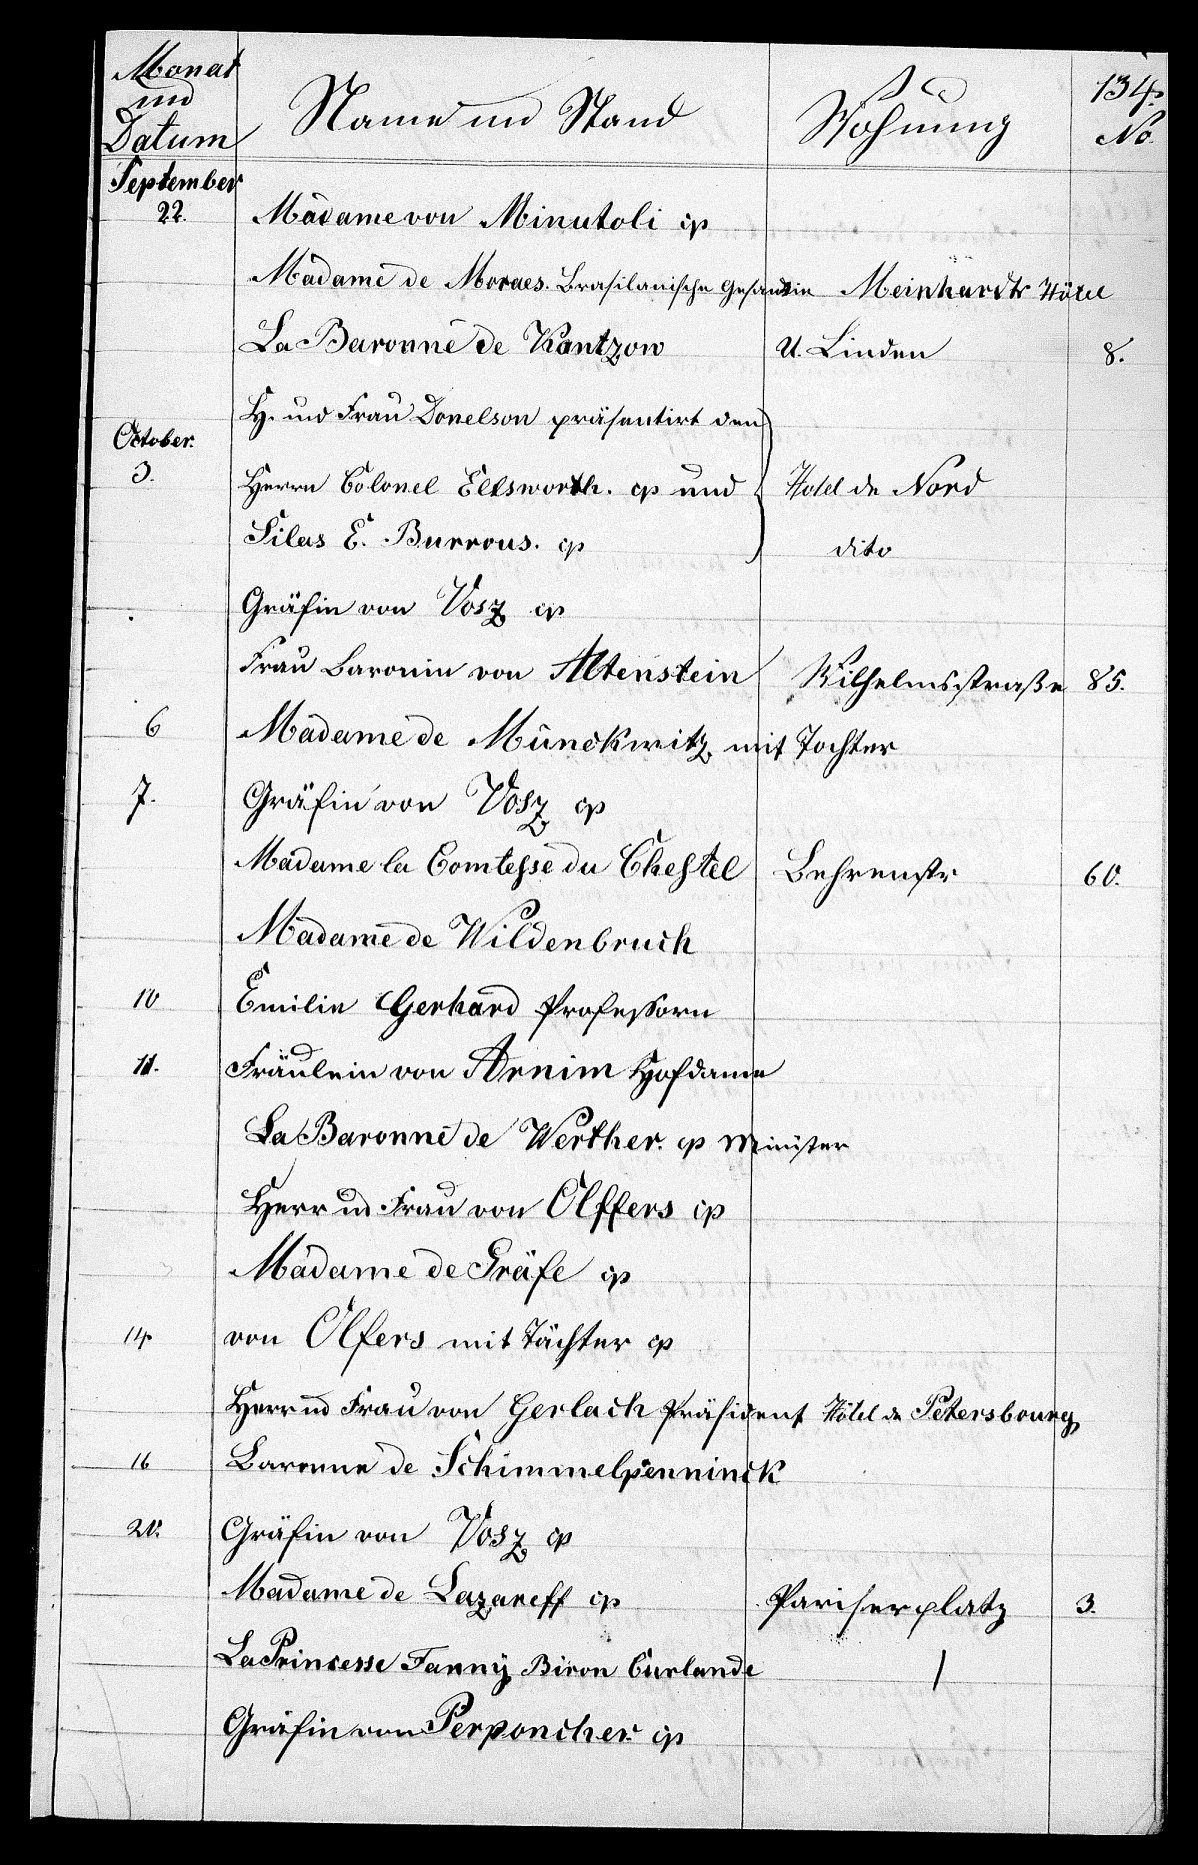 134.
Monat und Datum Name und Stand Wohnung No.
September
22. Madame von Minutoli cp
Madame de Moraes. Brasilanische Gesandtin Meinhardts Hôtel
La Baronne de Kantzow U. Linden 8.
H. und Frau Donelson präsentirt den
October.
3. Herrn Colonel Ellsworth. cp und Hotel de Nord
Silas E. Burrous. cp dito
Gräfin von Vosz cp
Frau Baronin von Altenstein Wilhelmsstraße 85.
6 Madame de Münckwitz mit Tochter
7. Gräfin von Vosz cp
Madame la Comtesse du Chastel Behrenstr 60.
Madame de Wildenbruch
10 Emilie Gerhard Professorn
11. Fräulein von Arnim Hofdame
La Baronne de Werther. cp Minister
Herr und Frau von Olffers cp
Madame de Gräfe cp
14 von Olfers mit Tächter cp
Herr und Frau von Gerlach Präsident Hôtel de Petersbourg
16 Baronne de Schimmelpenninck
20. Gräfin von Vosz cp
Madame de Lazareff cp Pariserplatz 3.
La Princesse Fanny Biron Curlande
Gräfin von Perponcher cp